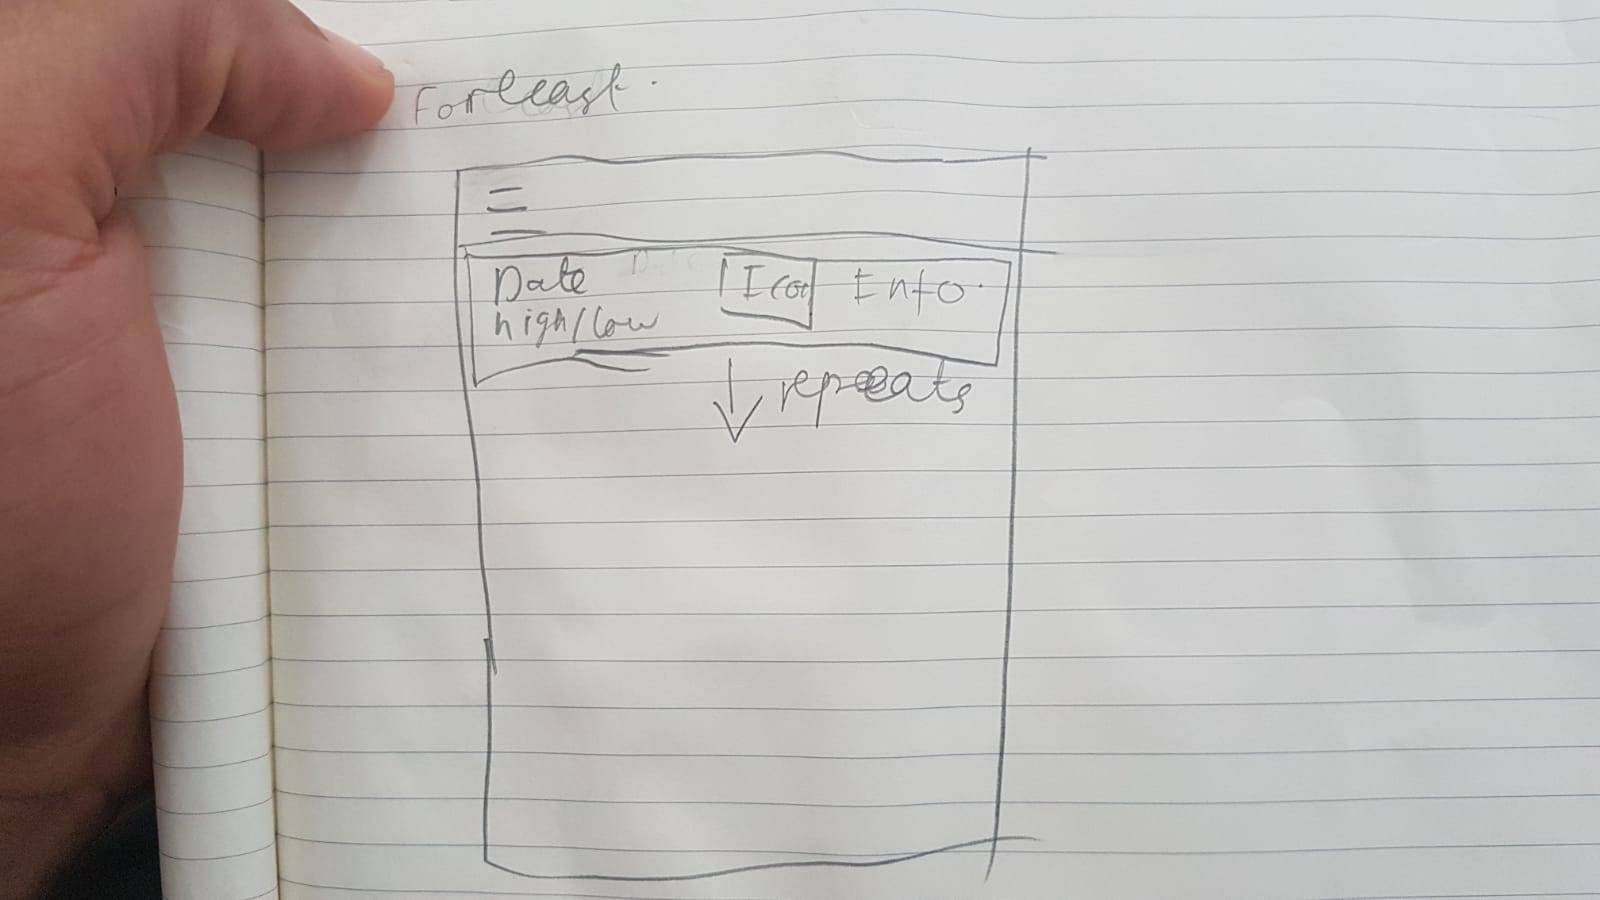 Forecast.
Date
high/low
Icon
Info.
repeats